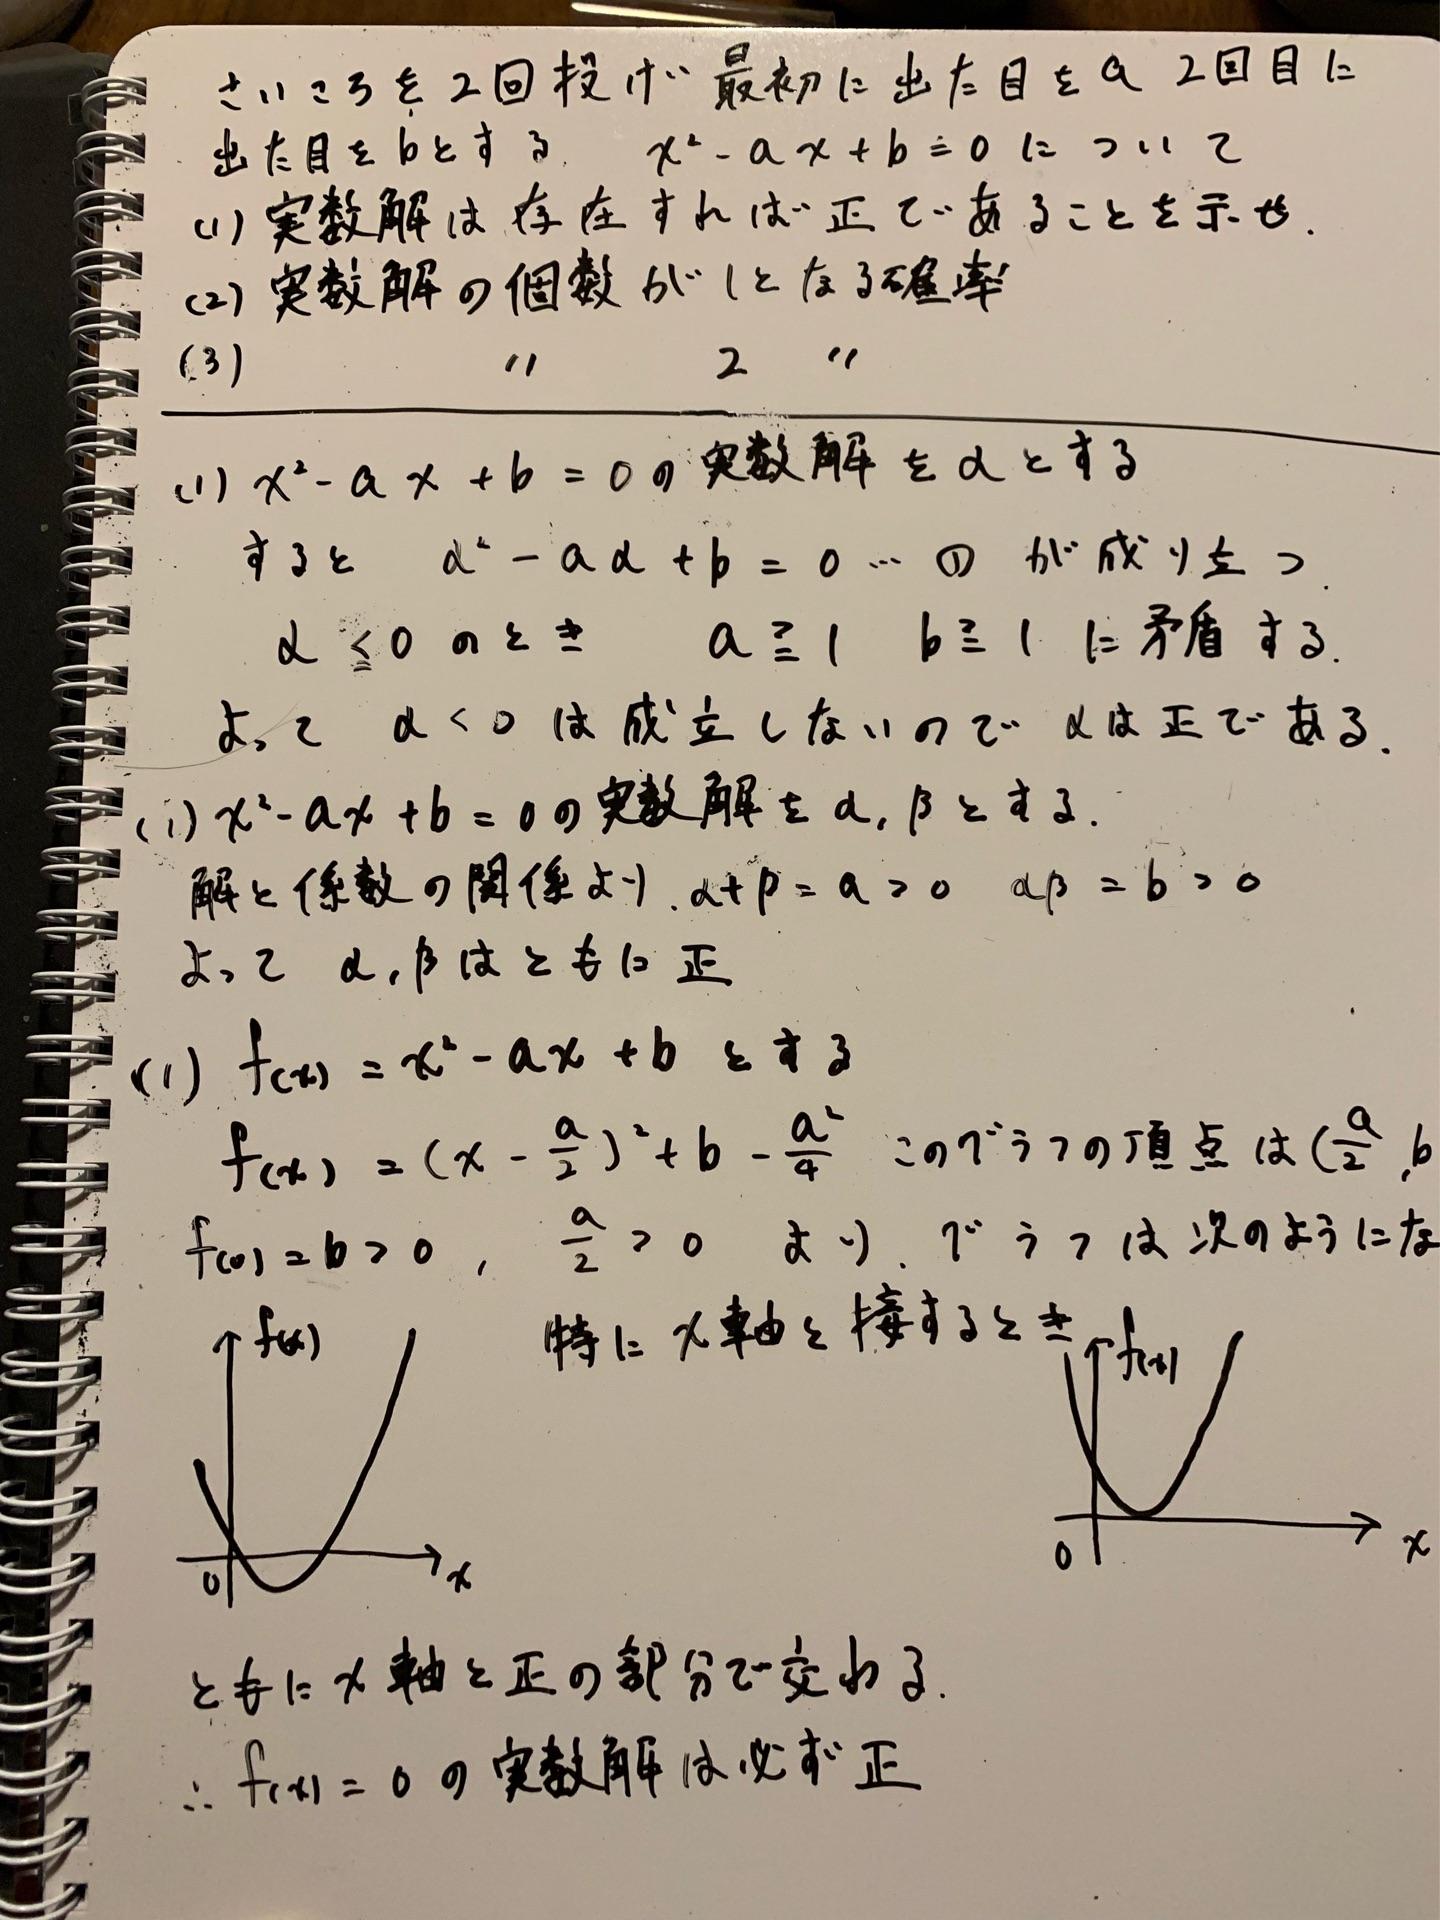 さいころを2回投げ 最初に出た目をa 2回目に
出た目をbとする. x²-ax+b=0について
(1) 実数解は存在すれば正であることを示せ.
(2) 実数解の個数が1となる確率
(3) 〃 2 〃
(1) x²-ax+b=0の実数解をαとする
すると α²-aα+b=0…① が成り立つ.
α≦0のとき a≧1 b≧1 に矛盾する.
よって α<0は成立しないので αは正である.
(1) x²-ax+b=0の実数解をα,βとする.
解と係数の関係より. α+β=a>0 αβ=b>0
よって α,βはともに正
(1) f(x)=x²-ax+b とする
f(x)=(x-a/2)²+b-a²/4 このグラフの頂点は(a/2,b
f(0)=b>0, a/2>0 より. グラフは次のようにな
特にx軸と接するとき
f(x) f(x)
0 x 0 x
ともにx軸と正の部分で交わる.
∴ f(x)=0の実数解は必ず正